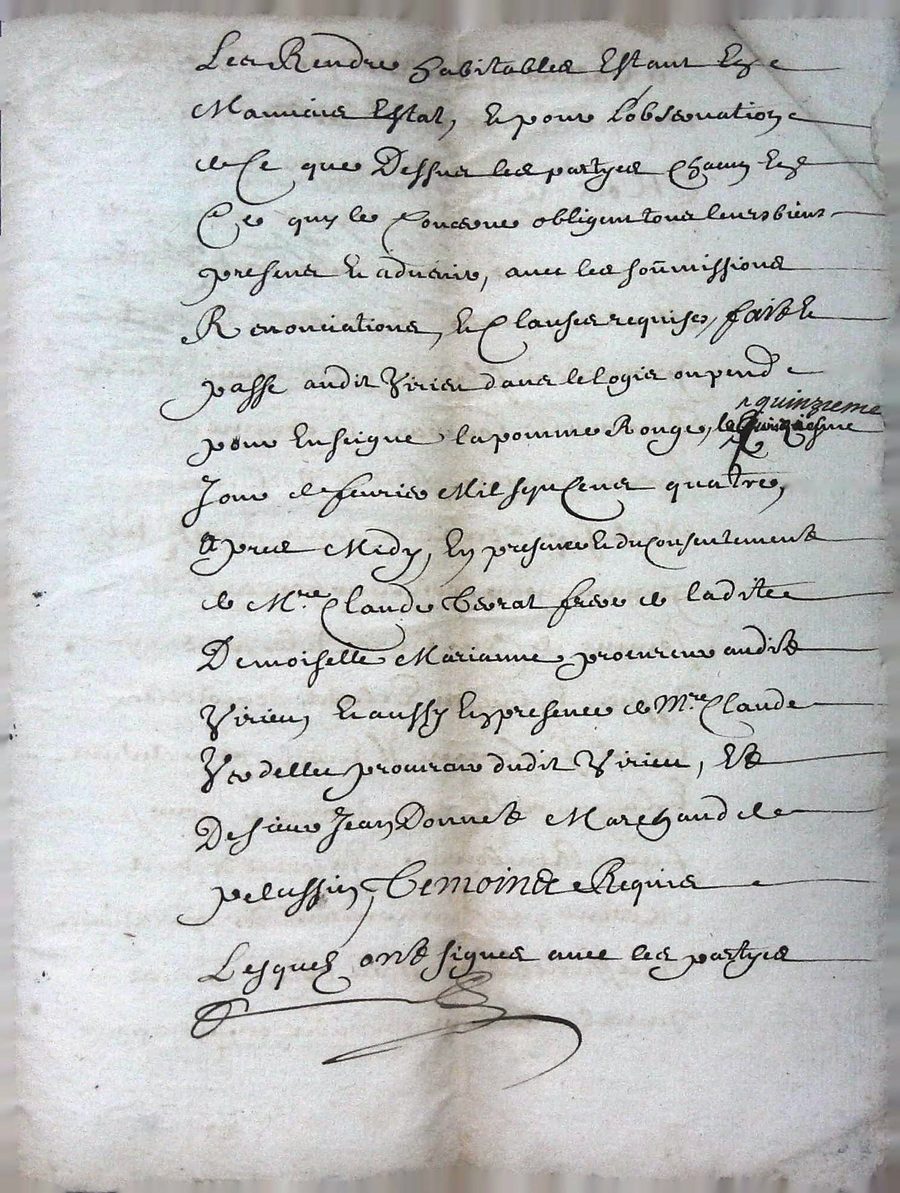 Les Rendre habitables Estant En
Mauvais Estat, Et pour l'observation
de Ce que Dessus les partyes Chacun En
Ce quy le Concerne obligent tous leurs biens
presens Et advenir, avec les soûmissions
Renonciations, Et Clauses requises, fait Et
passé audit Virieu dans le logis ou pend
pour Enseigne la pomme Rouge, le quinziesme quinzieme
Jour de feuvrier Mil sept Cens quatre,
apres Midy, En presence Et du Consentement
de Mre Claude Terrat frere de ladite
Demoiselle Marianne procureur audit
Virieu, Et aussy En presence de Mre Claude
procureur dudit Virieu, Et
De sieur Jean Donnet Marchand de
pelussin, Temoins Requis
Lesquels ont signés avec les partyes